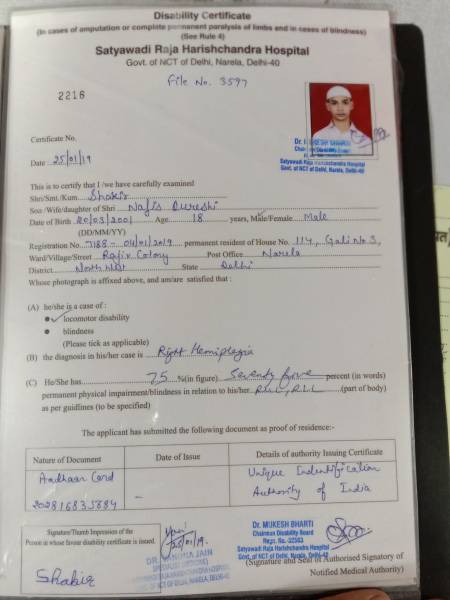 Disability Certificate
(In cases of amputation or complete permanent paralysis of limbs and in cases of blindness)
(See Rule 4)
Satyawadi Raja Harishchandra Hospital
Govt. of NCT of Delhi, Narela, Delhi-40
File No. 3597
2216
Certificate No.
Date 25/01/19
Chairman Disability Board
Satyawadi Raja Harishchandra Hospital
Govt. of NCT of Delhi, Narela, Delhi
This is to certify that I /we have carefully examined
Shri/Smt./Kum. Shakir
Son /Wife/daughter of Shri Nafis Qureshi
Date of Birth 20/03/2001 Age 18 years, Male/Female Male
(DD/MM/YY)
Registration No. 7188 - 04/01/2019 permanent resident of House No. 114, Gali No 3,
Ward/Village/Street Rajiv Colony Post Office Narela
District North West State Delhi
Whose photograph is affixed above, and am/are satisfied that :
(A) he/she is a case of :
locomotor disability
blindness
(Please tick as applicable)
(B) the diagnosis in his/her case is Right Hemiplegia
(C) He/She has 75 %(in figure) Seventy five percent (in words)
permanent physical impairment/blindness in relation to his/her RUL, RLL (part of body)
as per guidlines (to be specified)
The applicant has submitted the following document as proof of residence:-
Nature of Document Date of Issue Details of authority Issuing Certificate
Aadhaar Card - Unique Indentification
202816835684 Authority of India
Signature/Thumb Impression of the
Person in whose favour disability certificate is issued.
Shakir
Dr. MUKESH BHARTI
Chairman Disability Board
Satyawadi Raja Harishchandra Hospital
Govt. of NCT of Delhi, Narela, Delhi
(Signature and Seal of Authorised Signatory of
Notified Medical Authority)